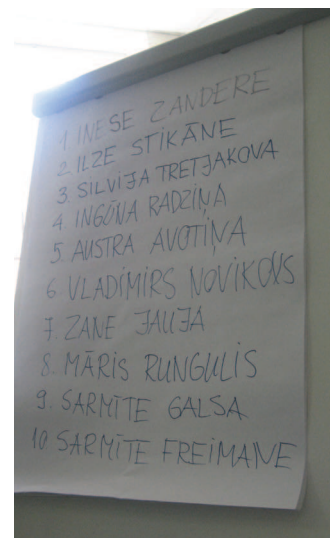 1. INESE ZANDERE
2. ILZE STIKĀNE
3. SILVIJA TRETJAKOVA
4. INGŪNA RADZIŅA
5. AUSTRA AVOTIŅA
6. VLADIMIRS NOVIKOVS
7. ZANE JAUJA
8. MĀRIS RUNGULIS
9. SARMĪTE GALSA
10 SARMĪTE FREIMANE